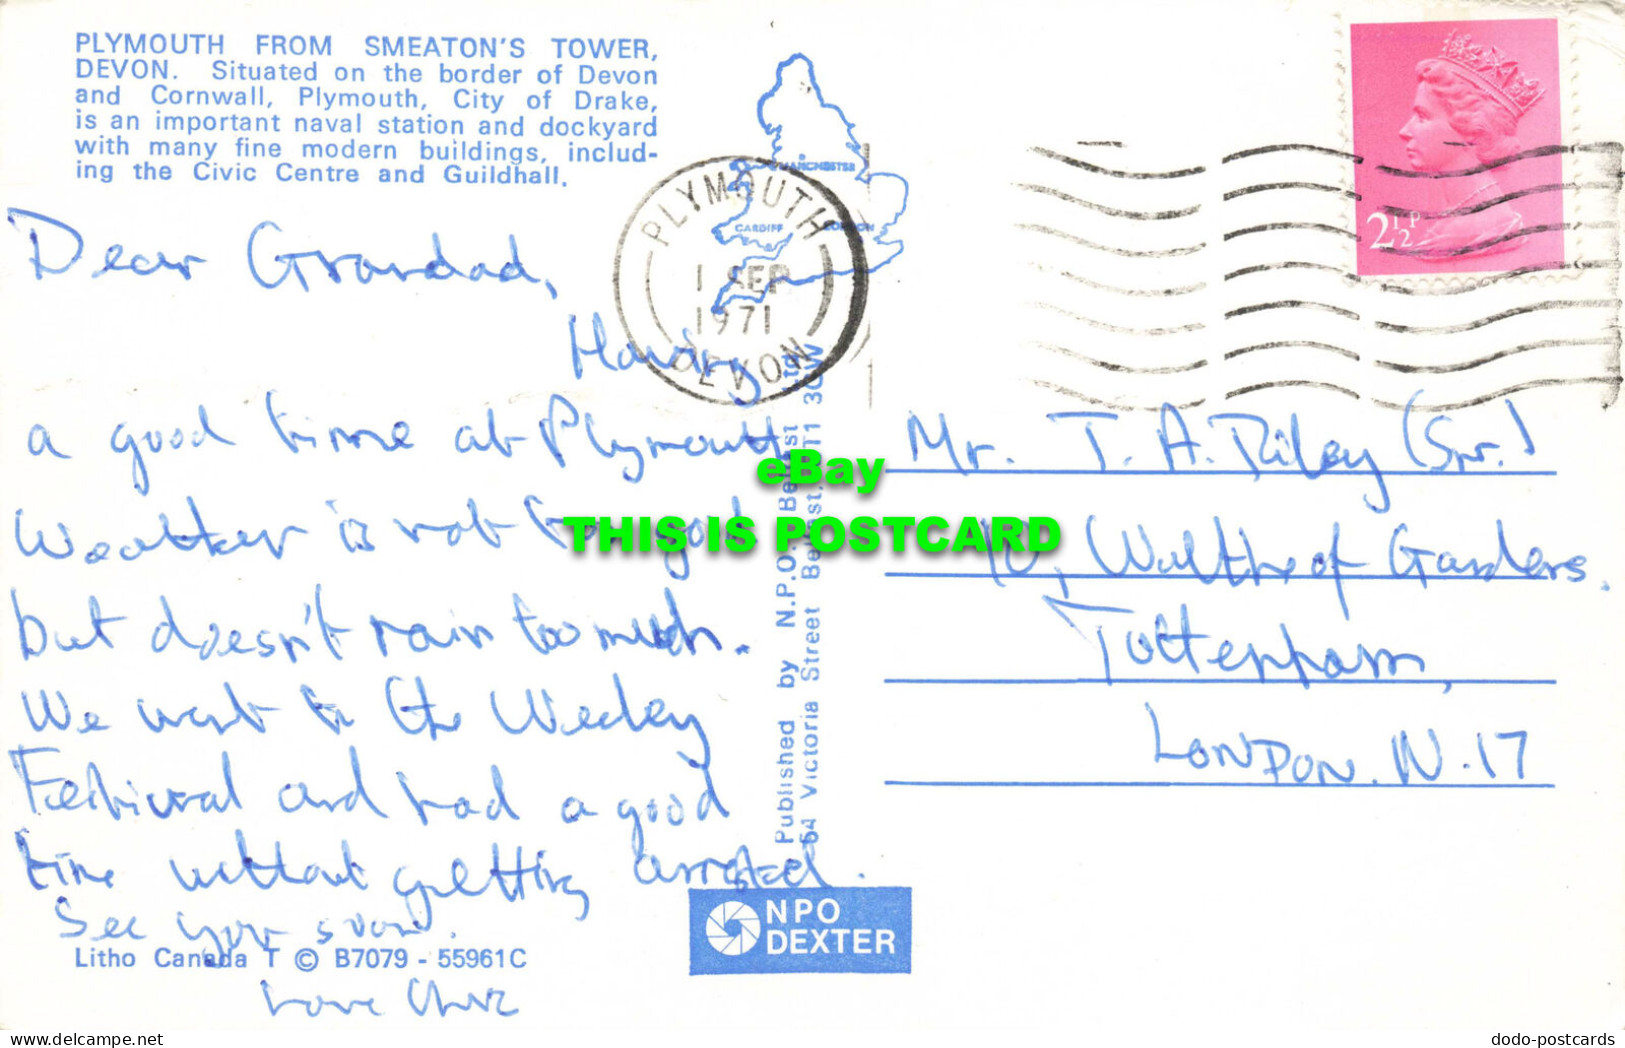 PLYMOUTH FROM SMEATON'S TOWER,
DEVON. Situated on the border of Devon
and Cornwall, Plymouth, City of Drake,
is an important naval station and dockyard
with many fine modern buildings, includ-
ing the Civic Centre and Guildhall.
MANCHESTER
CARDIFF
LONDON
PLYMOUTH
1 SEP
1971
DEVON
2½P
Dear Grandad,
Having
a good time at Plymouth
Weather is not too good
but doesn't rain too much.
We went to the Weeley
Festival and had a good
time without getting arrested.
See you soon.
Love Chris
Mr. T. A. Riley (Snr.)
10, Waltheof Gardens.
Tottenham,
LONDON. N.17
Published by N.P.O. Belfast Ltd
Victoria Street Belfast, BT1 3GW
eBay
THIS IS POSTCARD
NPO
DEXTER
Litho Canada T © B7079 - 55961C
www.delcampe.net
dodo-postcards